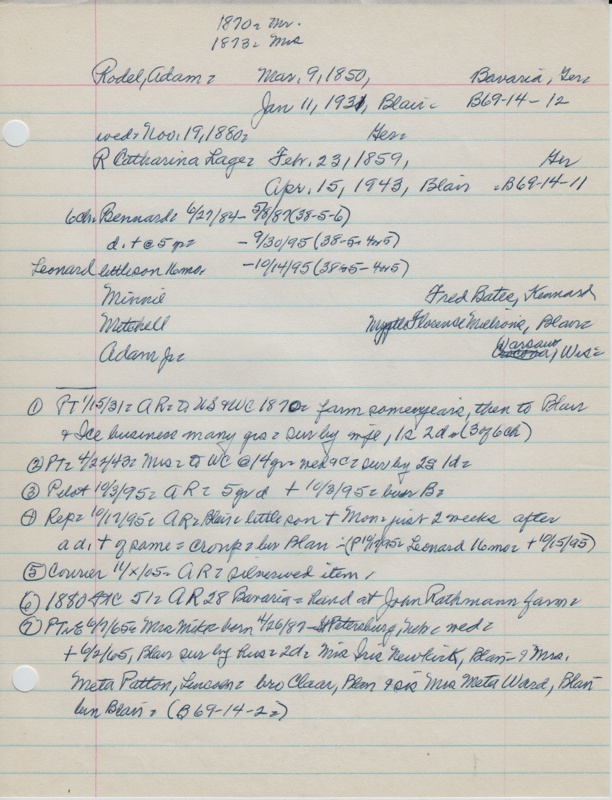 1870 = Mr.
1873 = Mrs
Rodel, Adam = Mar. 9, 1850, Bavaria, Ger =
Jan 11, 1931, Blair = B69-14-12
wed = Nov. 19, 1880 = Ger =
R Catharina Lage = Feb. 23, 1859, Ger
Apr. 15, 1943, Blair = B69-14-11
6ch = Bennard = 6/27/84 - 5/8/87 (38-5-6)
d. + @ 5 yr = - 9/30/95 (38-5-4or5)
Leonard little son 16mo. - 10/14/95 (38-5-4or5)
Minnie Fred Batee, Kennard
Mitchell Myrtle Florense Blair =
Adam Jr = Warsaw, Wis =
① PT 1/15/31 = AR = to US & WC 1870 = farm some years, then to Blair
& Ice business many yrs = sur by wife, 1s 2d = (3 of 6ch)
② PT = 4/22/43 = Mrs = to WC @ 14 yr = wed & C = sur by 2s 1d =
③ Pilot 10/3/95 = AR = 5 yr d + 10/3/95 = bur B =
④ Rep = 10/17/95 = AR = Blair = little son + Mon = just 2 weeks after
a d. + of same = croup = bur Blair = Leonard 16mo = + 10/15/95)
⑤ Courier 11/x/05 = AR = silver wed item,
⑥ 1880 51 = AR 28 Bavaria = hand at John Rathmann farm =
⑦ 6/7/65 = Mrs Mitt = born 4/26/87 Petersburg, Neb = wed =
+ 6/2/65, Blair sur by hus = 2d = Mrs Iris Newkirk, Blair - & Mrs.
Meta Patton, Lincoln = bro Claar, Blair & sis Mrs Meta Ward, Blair
bur Blair = (B69-14-2 =)